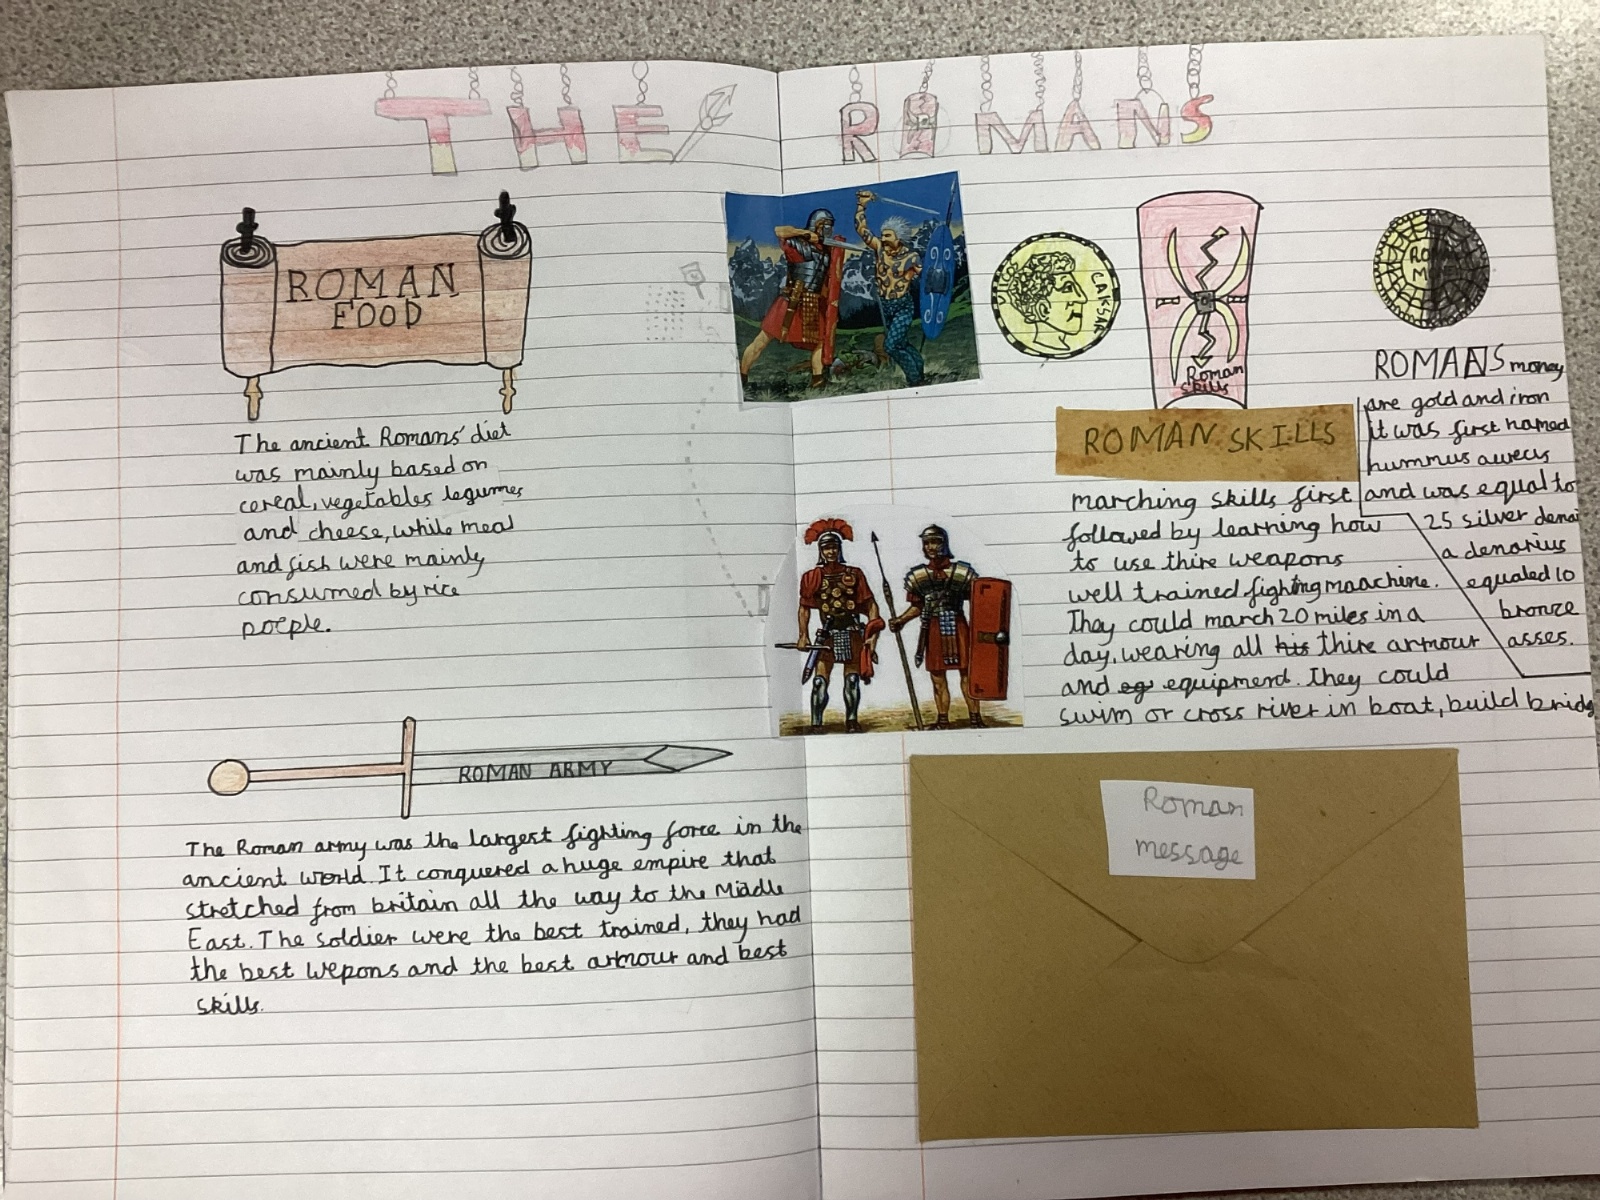 THE ROMANS
ROMAN
FOOD
The ancient Romans' diet
was mainly based on
cereal, vegetables legumes
and cheese, while meat
and fish were mainly
consumed by rice
poeple.
ROMAN ARMY
The Roman army was the largest fighting force in the
ancient world. It conquered a huge empire that
stretched from britain all the way to the Middle
East. The soldier were the best trained, they had
the best wepons and the best armour and best
skills.
CAESAR
Roman
skills
ROMAN SKILLS
marching skills first
followed by learning how
to use thire weapons
well trained fighting maachine.
They could march 20 miles in a
day, wearing all his thire armour
and eq equipment. They could
swim or cross river in boat, build bridg
RO
M
ROMANS money
are gold and iron
it was first named
hummus aurecys
and was equal to
25 silver denai
a denarius
equaled 10
bronze
asses.
Roman
message